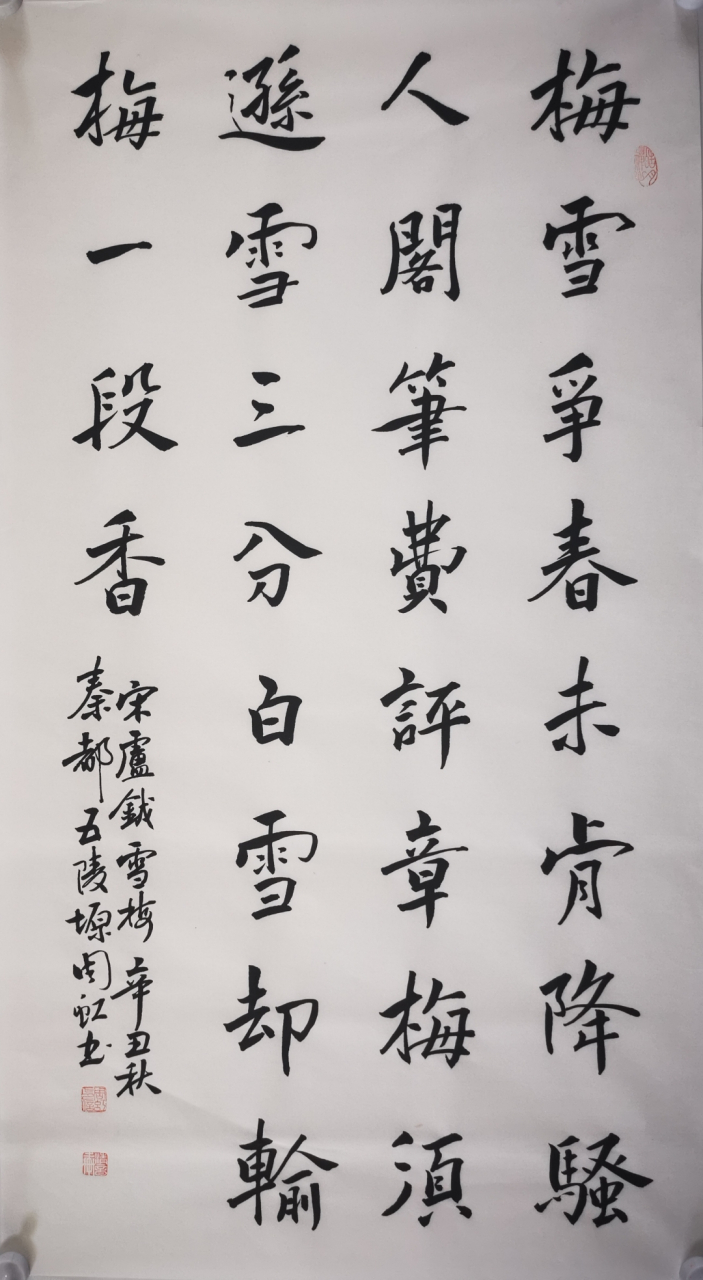 梅雪爭春未肯降騷
人閣筆費評章梅須
遜雪三分白雪却輸
梅一段香
宋盧鉞雪梅辛丑秋
秦都五陵塬周虹书